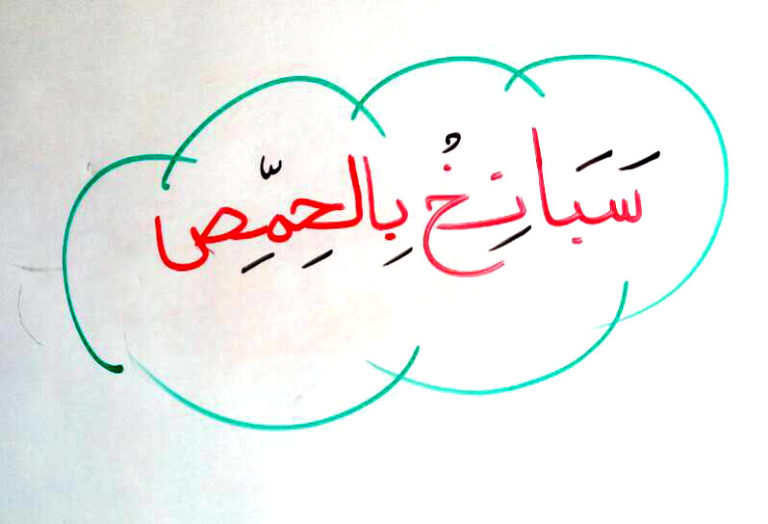 سَبَانِخُ بِالحِمِّصِ